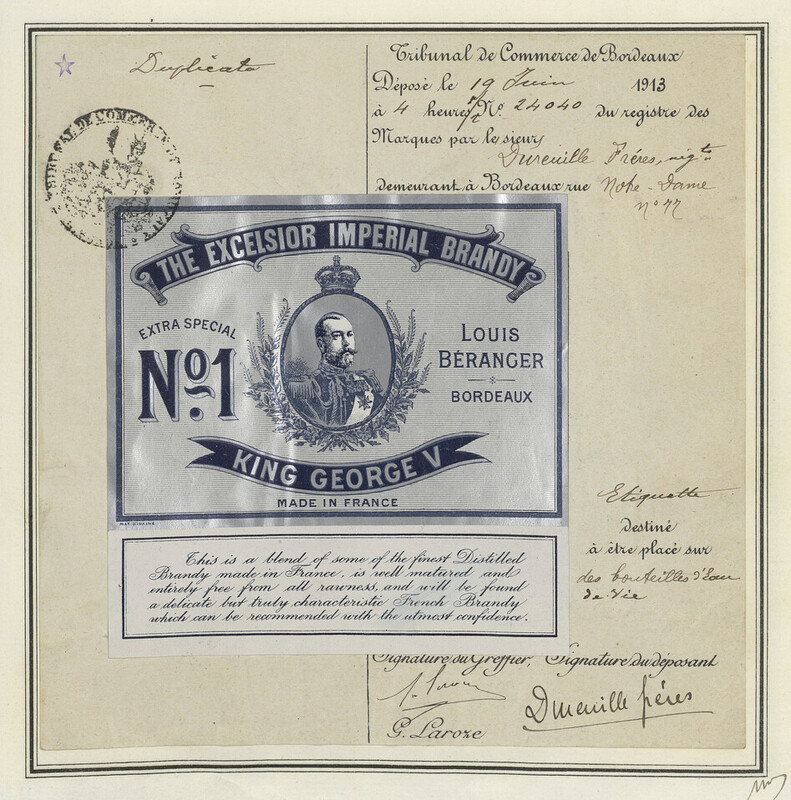 Duplicata
Tribunal de Commerce de Bordeaux
Déposé le 19 Juin 1913
à 4 heures 1/2 No. 24040 du registre des
Marques par le sieur
Dureuille Fréres, nigts
demeurant à Bordeaux rue Notre-Dame
n° 77
TRIBUNAL DE COMMERCE
THE EXCELSIOR IMPERIAL BRANDY
EXTRA SPECIAL
No. 1
LOUIS
BÉRANGER
BORDEAUX
KING GEORGE V
MADE IN FRANCE
This is a blend of some of the finest Distilled
Brandy made in France, is well matured and
entirely free from all rawness, and will be found
a delicate but truly characteristic French Brandy
which can be recommended with the utmost confidence.
Etiquette
destiné
à être placé sur
des bouteilles d'Eau
de Vie
Signature du Greffier, Signature du déposant
G. Laroze
Dureuille fréres